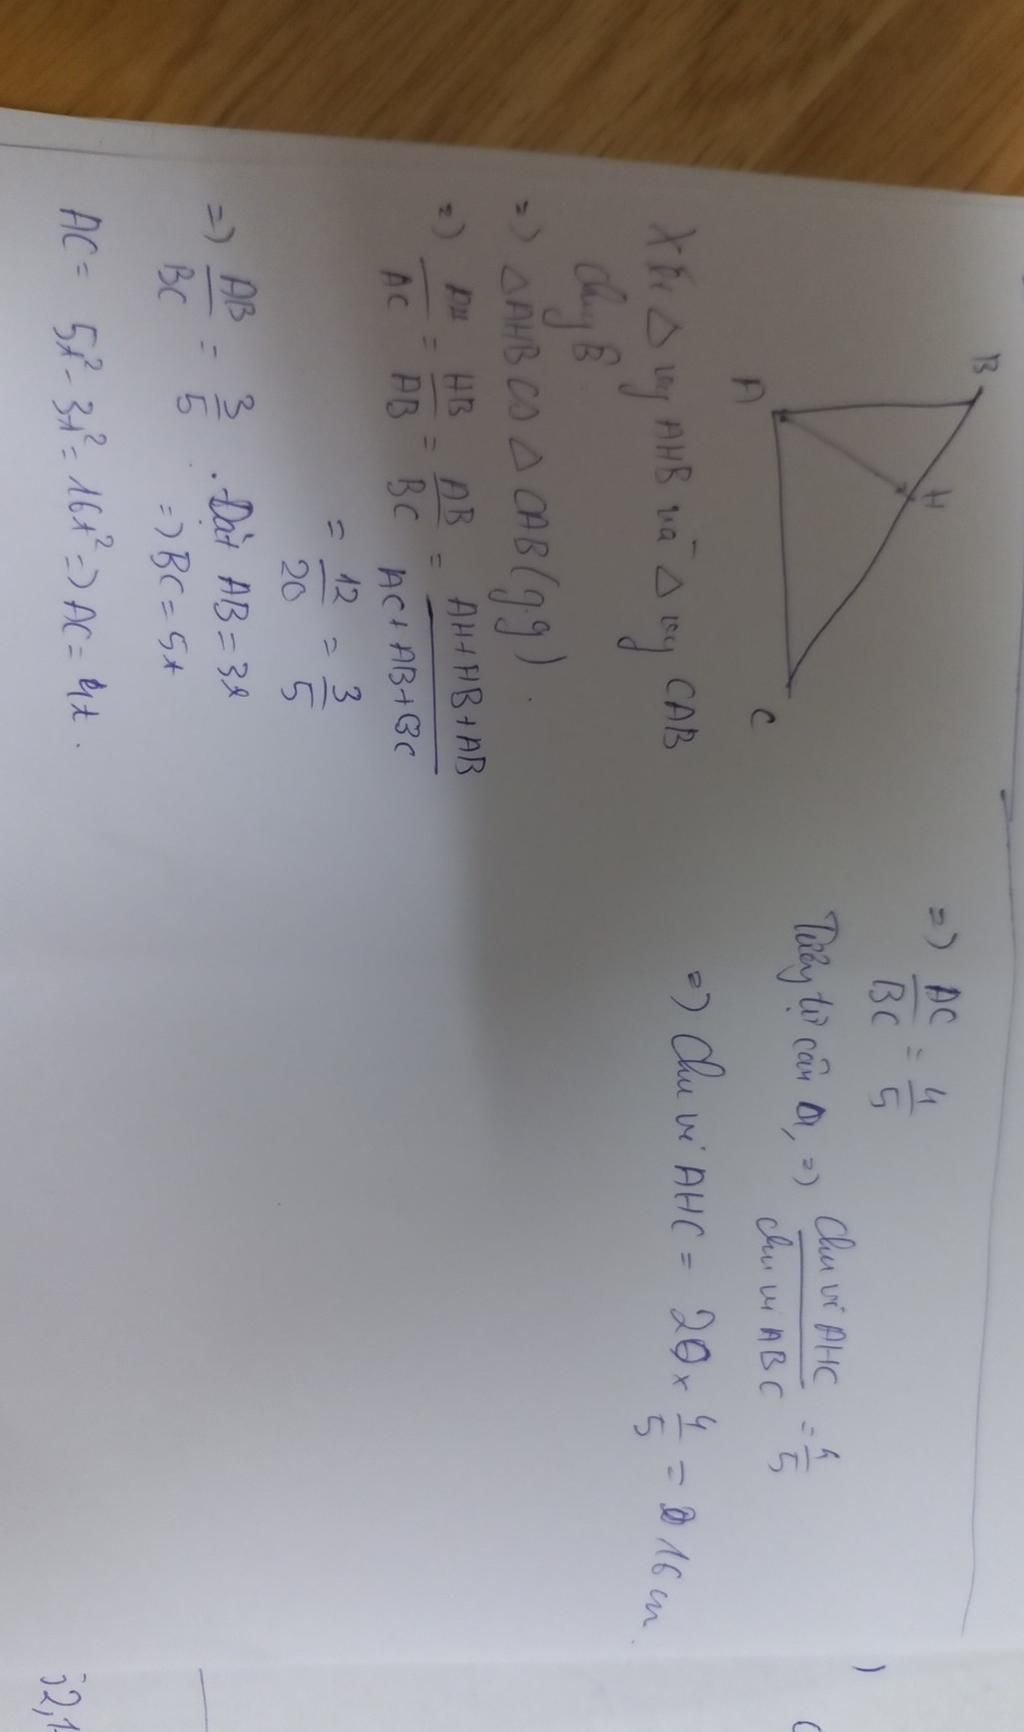 B
H
A
C
Xét △ vg AHB và △ vg CAB
chung B̂
=> △AHB ∽ △CAB (g.g).
=> AH/AC = HB/AB = AB/BC = AH+HB+AB/AC+AB+BC
= 12/20 = 3/5
=> AB/BC = 3/5 . Đặt AB = 3x
=> BC = 5x
AC = 5x² - 3x² = 16x² => AC = 4x.
=> AC/BC = 4/5
Tương tự câu a, => Chu vi AHC/chu vi ABC = 4/5
=> Chu vi AHC = 20 x 4/5 = 16 cm.
)